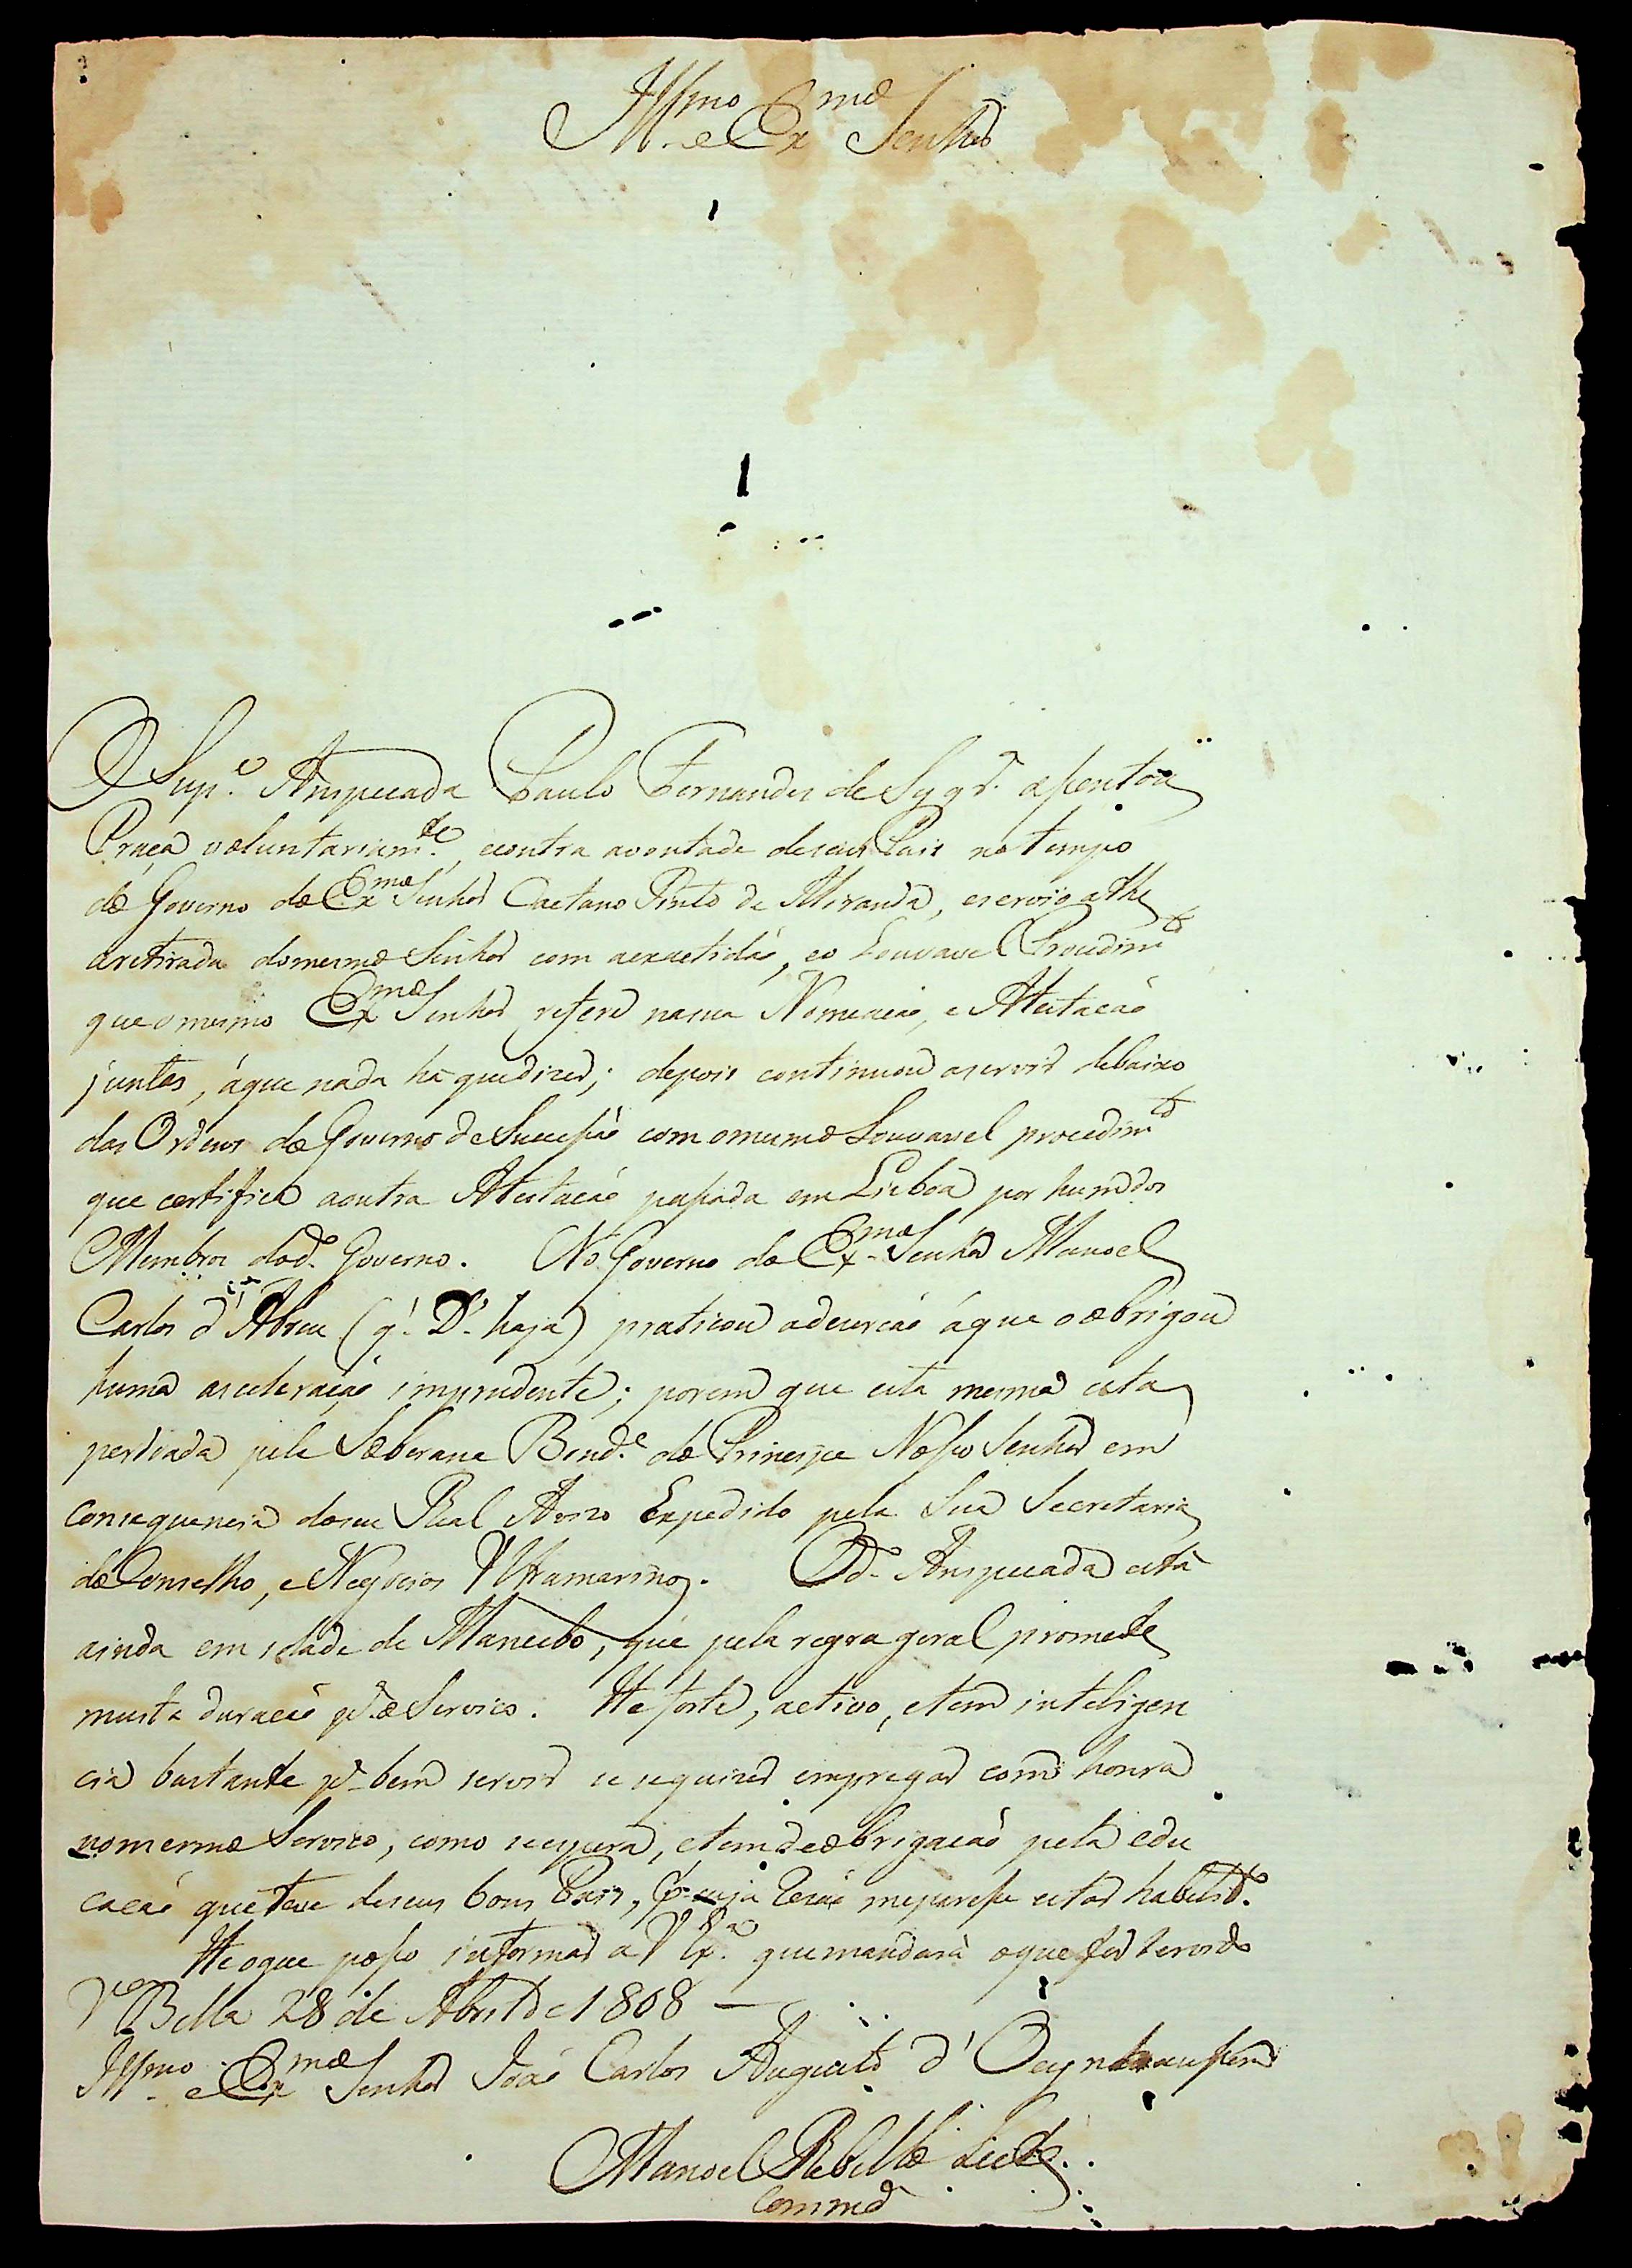 Illmo e Exmo Senhor
O Supe. Anspecada Paulo Fernandes de Syqra. assentou
Praça voluntariamte., econtra avontade deseus Pais no tempo
do Governo do Exmo Senhor Caetano Pinto de Miranda, eservio athe
aretirada domesmo Senhor com aexactidaõ, eo Louvavel Procedimto
que o mesmo Exmo Senhor refere nasua Nomeaçaõ, e Atestaçaõ
juntas, áque nada ha quedizer; depois continuou aservir debaixo
das Ordens do Governo de Sucessaõ com omesmo Louvavel procedimto
que certifica aoutra Atestaçaõ passada em Lisboa por hum dos
Membros dodo. Governo. No Governo do Exmo Senhor Manoel
Carlos d'Abreu (q. Ds. haja) praticou adeserçaõ áque oobrigou
huma aceleraçaõ imprudente; porem que esta mesma esta
perdoada pela Soberana Bonde. do Principe Nosso Senhor em
consequencia doseu Real Aviso Expedido pela Sua Secretaria
do Conselho, e Negocios Ultramarinos. Odo. Anspecada está
ainda em idade de Mancebo, que pela regra geral promete
muita duraçaõ pa. o Serviço. He forte, activo, etem inteligen
cia bastante pa. bem servir se sequizer empregar com honra
nomesmo Serviço, como seespera, etem deobrigaçaõ pela edu
caçaõ queteve deseus bons Pais, pr. cuja rezaõ meparesse estar habelido.
He oque posso informar a V Exa. que mandará oque for servido
Va Bella 28 de Abril de 1808 —
Illmo e Exmo Senhor Joaõ Carlos Augusto d'Oeynhausen
Manoel Rebello Leite
Comme